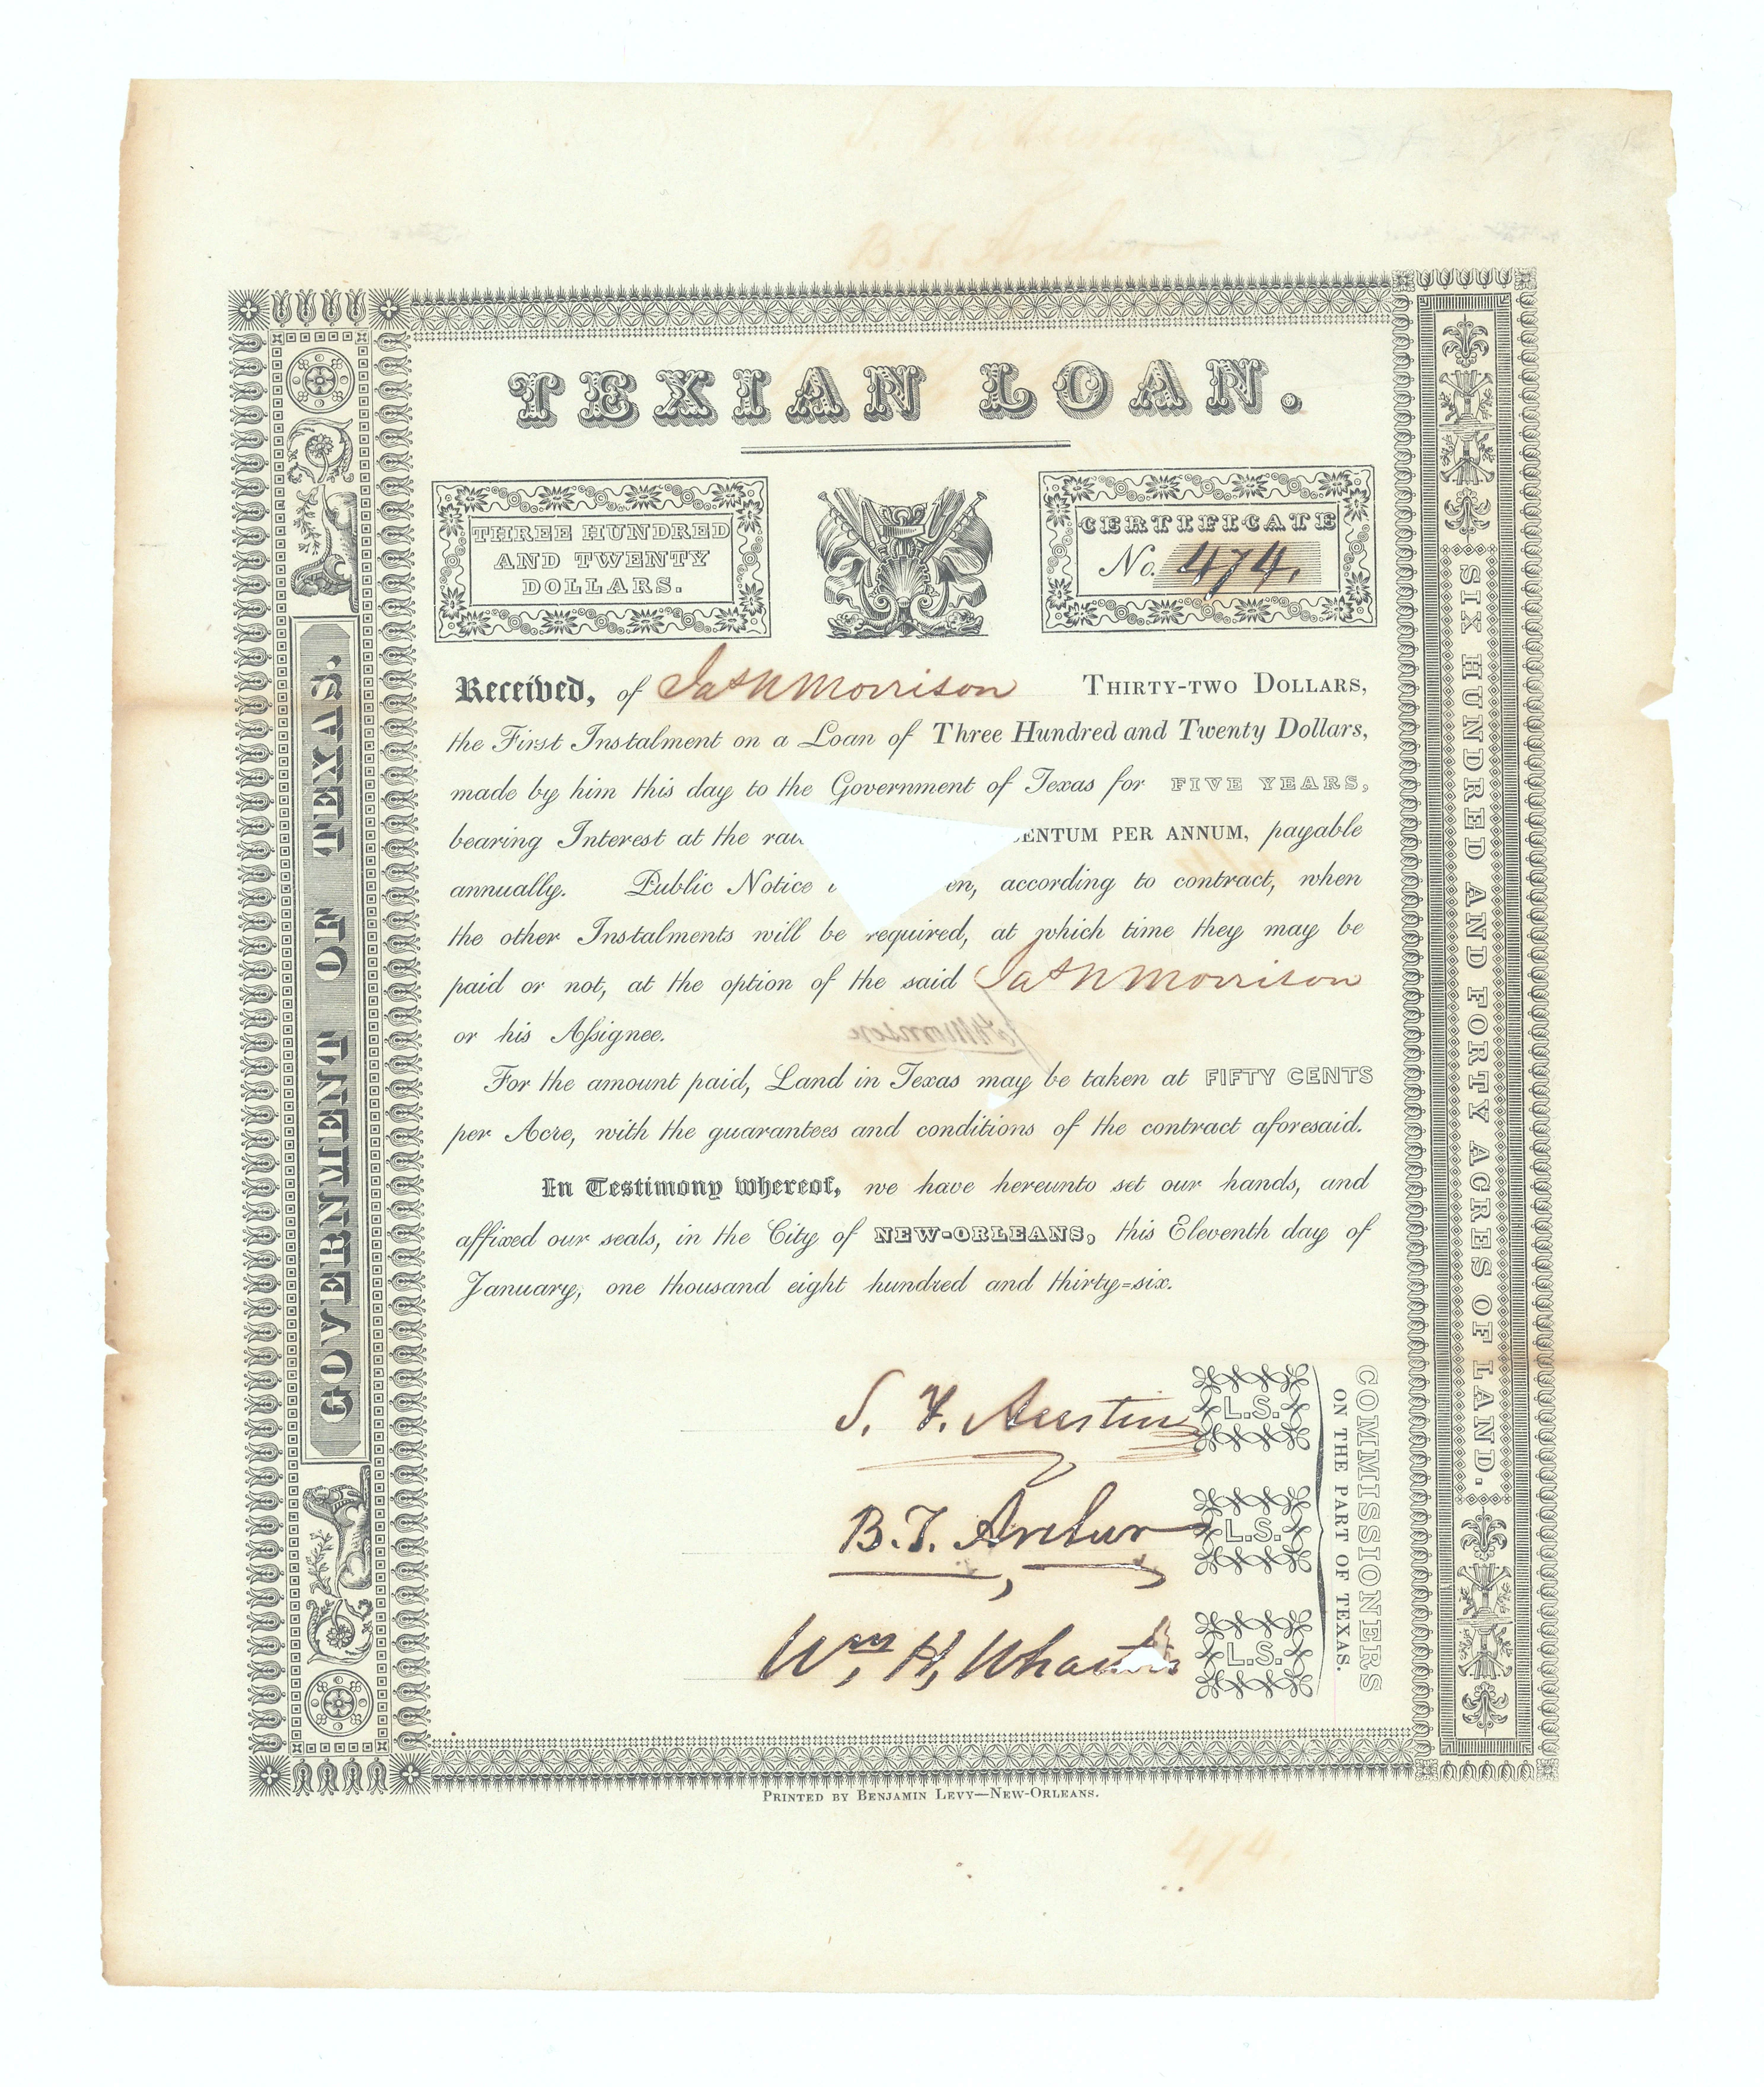 TEXIAN LOAN.
THREE HUNDRED
AND TWENTY
DOLLARS.
CERTIFICATE
No. 474.
Received, of Jas N Morrison THIRTY-TWO DOLLARS,
the First Instalment on a Loan of Three Hundred and Twenty Dollars,
made by him this day to the Government of Texas for FIVE YEARS,
bearing Interest at the PER ANNUM, payable
annually. Public Notice according to contract, when
the other Instalments will be required, at which time they may be
paid or not, at the option of the said Jas N Morrison
or his Assignee.
For the amount paid, Land in Texas may be taken at FIFTY CENTS
per Acre, with the guarantees and conditions of the contract aforesaid.
In Testimony whereof, we have hereunto set our hands, and
affixed our seals, in the City of NEW-ORLEANS, this Eleventh day of
January, one thousand eight hundred and thirty=six.
S. F. Austin L.S.
B. T. Archer L.S.
Wm. H. Wharton L.S.
COMMISSIONERS
ON THE PART OF TEXAS.
GOVERNMENT OF TEXAS.
SIX HUNDRED AND FORTY ACRES OF LAND.
PRINTED BY BENJAMIN LEVY—NEW-ORLEANS.
474.